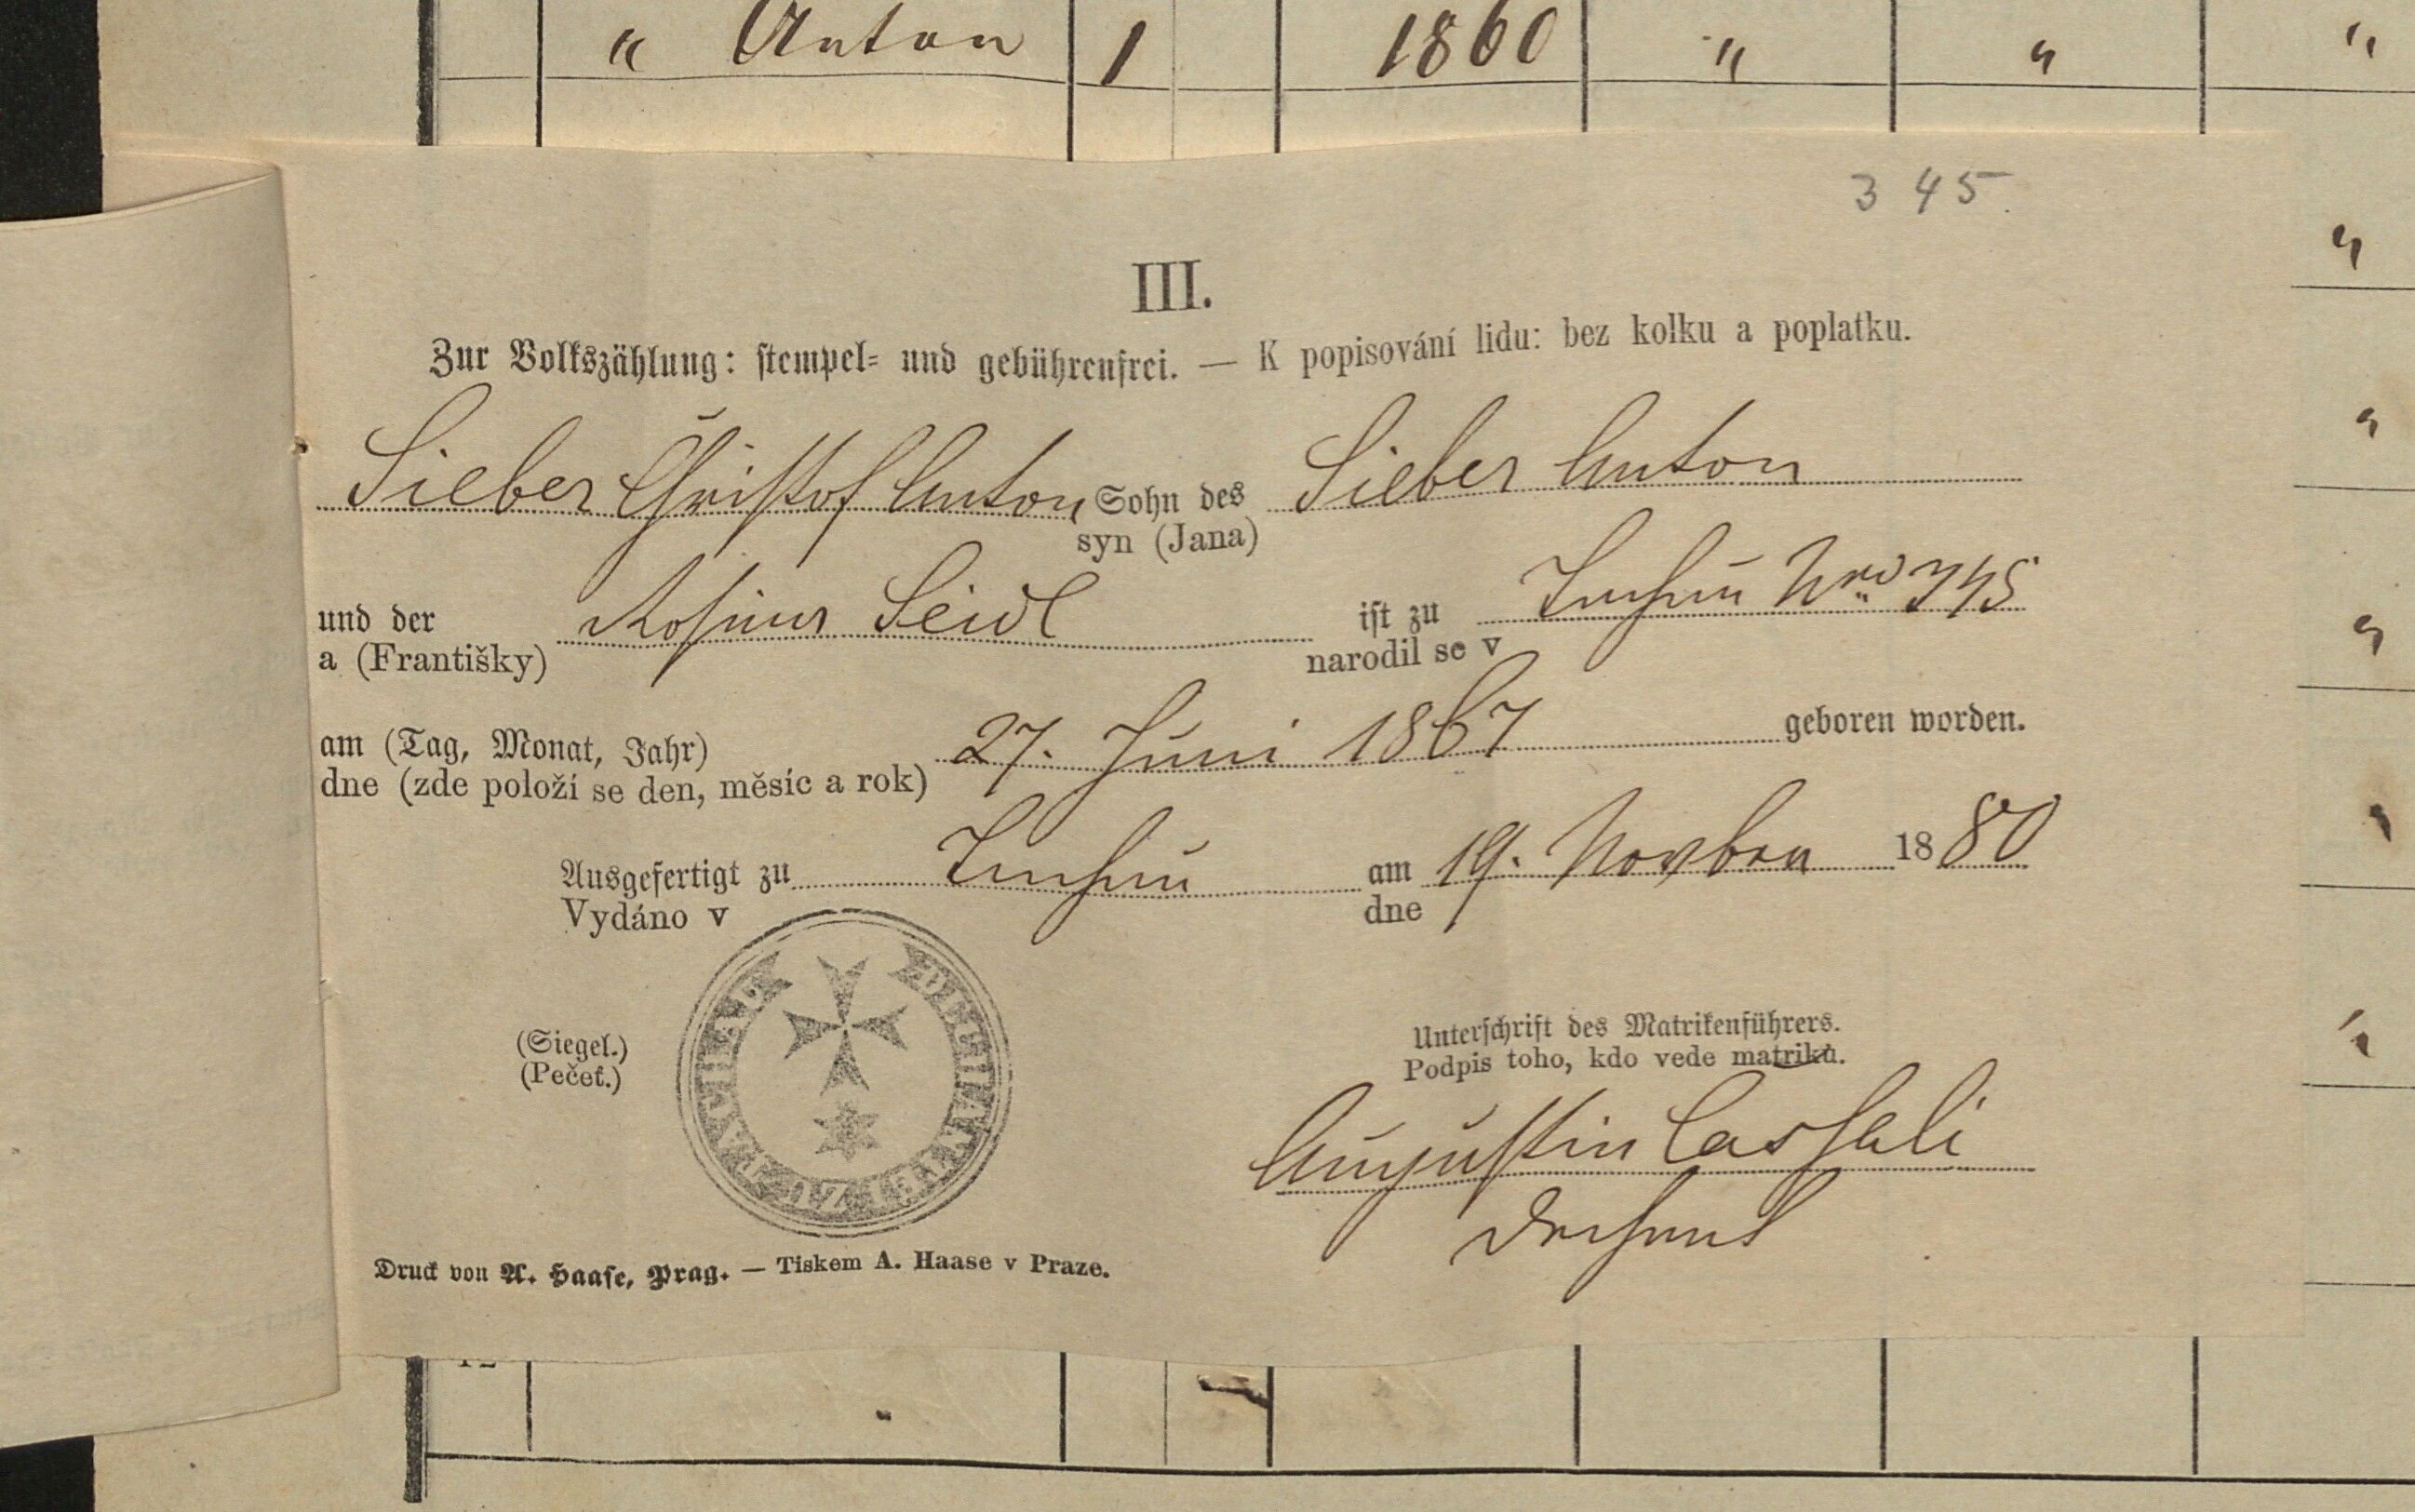 " Anton 1 1860 " " "
345.
III.
Zur Volkszählung: stempel- und gebührenfrei. — K popisování lidu: bez kolku a poplatku.
Sieber Christof Anton Sohn des Sieber Anton
syn (Jana)
und der Rosina Seidl ist zu Tachau Nro 345
a (Františky) narodil se v
am (Tag, Monat, Jahr) 27. Juni 1867 geboren worden.
dne (zde položí se den, měsíc a rok)
Ausgefertigt zu Tachau am 19. Novber 1880
Vydáno v dne
(Siegel.)
(Pečeť.)
Unterschrift des Matrikenführers.
Podpis toho, kdo vede matriku.
Augustin
Dechant
Druck von A. Haase, Prag. — Tiskem A. Haase v Praze.